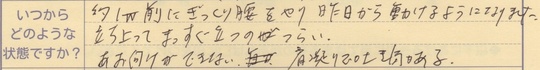 いつから
どのような
状態ですか?
約1W前にぎっくり腰をやり昨日から動けるようになりました
立ち上って まっすぐ立つのがつらい。
あお向けができない。肩凝りで吐き気がある。